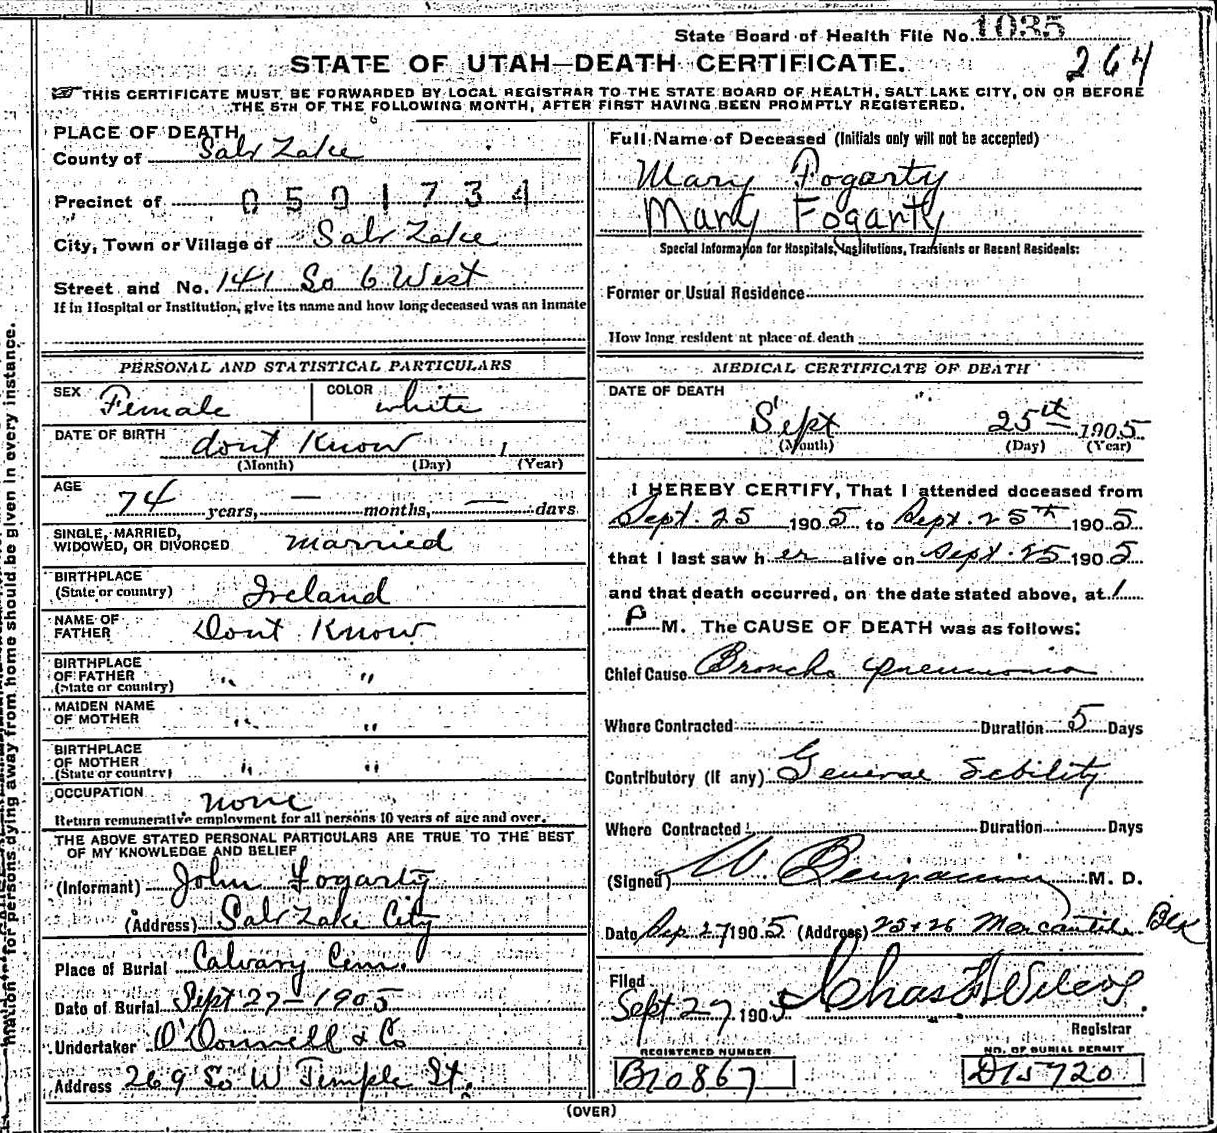 State Board of Health File No. 1035
264
STATE OF UTAH—DEATH CERTIFICATE.
THIS CERTIFICATE MUST BE FORWARDED BY LOCAL REGISTRAR TO THE STATE BOARD OF HEALTH, SALT LAKE CITY, ON OR BEFORE
THE 5TH OF THE FOLLOWING MONTH, AFTER FIRST HAVING BEEN PROMPTLY REGISTERED.
PLACE OF DEATH
County of Salt Lake
Precinct of 0501734
City, Town or Village of Salt Lake
Street and No. 141 So 6 West
If in Hospital or Institution, give its name and how long deceased was an Inmate
PERSONAL AND STATISTICAL PARTICULARS
SEX Female COLOR white
DATE OF BIRTH dont Know 1
(Month) (Day) (Year)
AGE
74 years, — months, — days
SINGLE, MARRIED,
WIDOWED, OR DIVORCED married
BIRTHPLACE
(State or country) Ireland
NAME OF
FATHER Dont Know
BIRTHPLACE
OF FATHER
(State or country) " "
MAIDEN NAME
OF MOTHER " "
BIRTHPLACE
OF MOTHER
(State or country) " "
OCCUPATION none
Return remunerative employment for all persons 10 years of age and over.
THE ABOVE STATED PERSONAL PARTICULARS ARE TRUE TO THE BEST
OF MY KNOWLEDGE AND BELIEF
(Informant) John Fogarty
(Address) Salt Lake City
Place of Burial Calvary Cem.
Date of Burial Sept 27— 1905
Undertaker O'Donnell & Co
Address 269 So W Temple St.
Full Name of Deceased (Initials only will not be accepted)
Mary Fogarty
Mary Fogarty
Special Information for Hospitals, Institutions, Transients or Recent Residents:
Former or Usual Residence
How long resident at place of death
MEDICAL CERTIFICATE OF DEATH
DATE OF DEATH
Sept 25th 1905
(Month) (Day) (Year)
I HEREBY CERTIFY, That I attended deceased from
Sept. 25 1905 to Sept. 25th 1905
that I last saw her alive on Sept. 25 1905
and that death occurred, on the date stated above, at 1
P M. The CAUSE OF DEATH was as follows:
Chief Cause Broncho pneumonia
Where Contracted Duration 5 Days
Contributory (if any) General Debility
Where Contracted Duration Days
(Signed) W. Benjamin M. D.
Date Sep. 27 1905 (Address) 25+26 Mercantile Blk
Filed
Sept 27 1905 Chas F Wilcox
Registrar
REGISTERED NUMBER
B10867
NO. OF BURIAL PERMIT
D15720
(OVER)
mation" for persons dying away from home should be given in every instance.